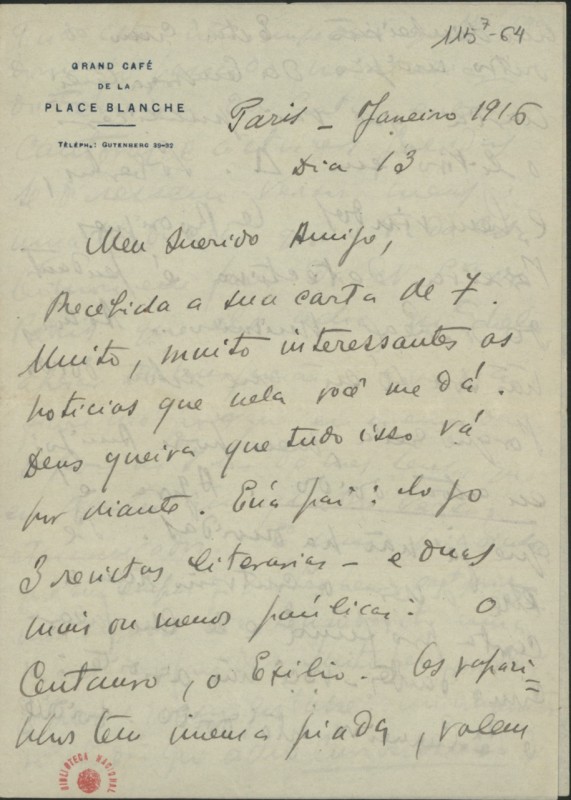 115⁷-64
GRAND CAFÉ
DE LA
PLACE BLANCHE
TÉLÉPH.: GUTENBERG 39-92
Paris – Janeiro 1916
Dia 13
Meu Querido Amigo,
Recebida a sua carta de 7.
Muito, muito interessantes as
noticias que nela você me dá.
Deus queira que tudo isso vá
por diante. Eia pai: logo
3 revistas literarias – e duas
mais ou menos paúlicas: o
Centauro, o Exilio. Os rapazi=
nhos tem imensa piada, valem
BIBLIOTECA NACIONAL